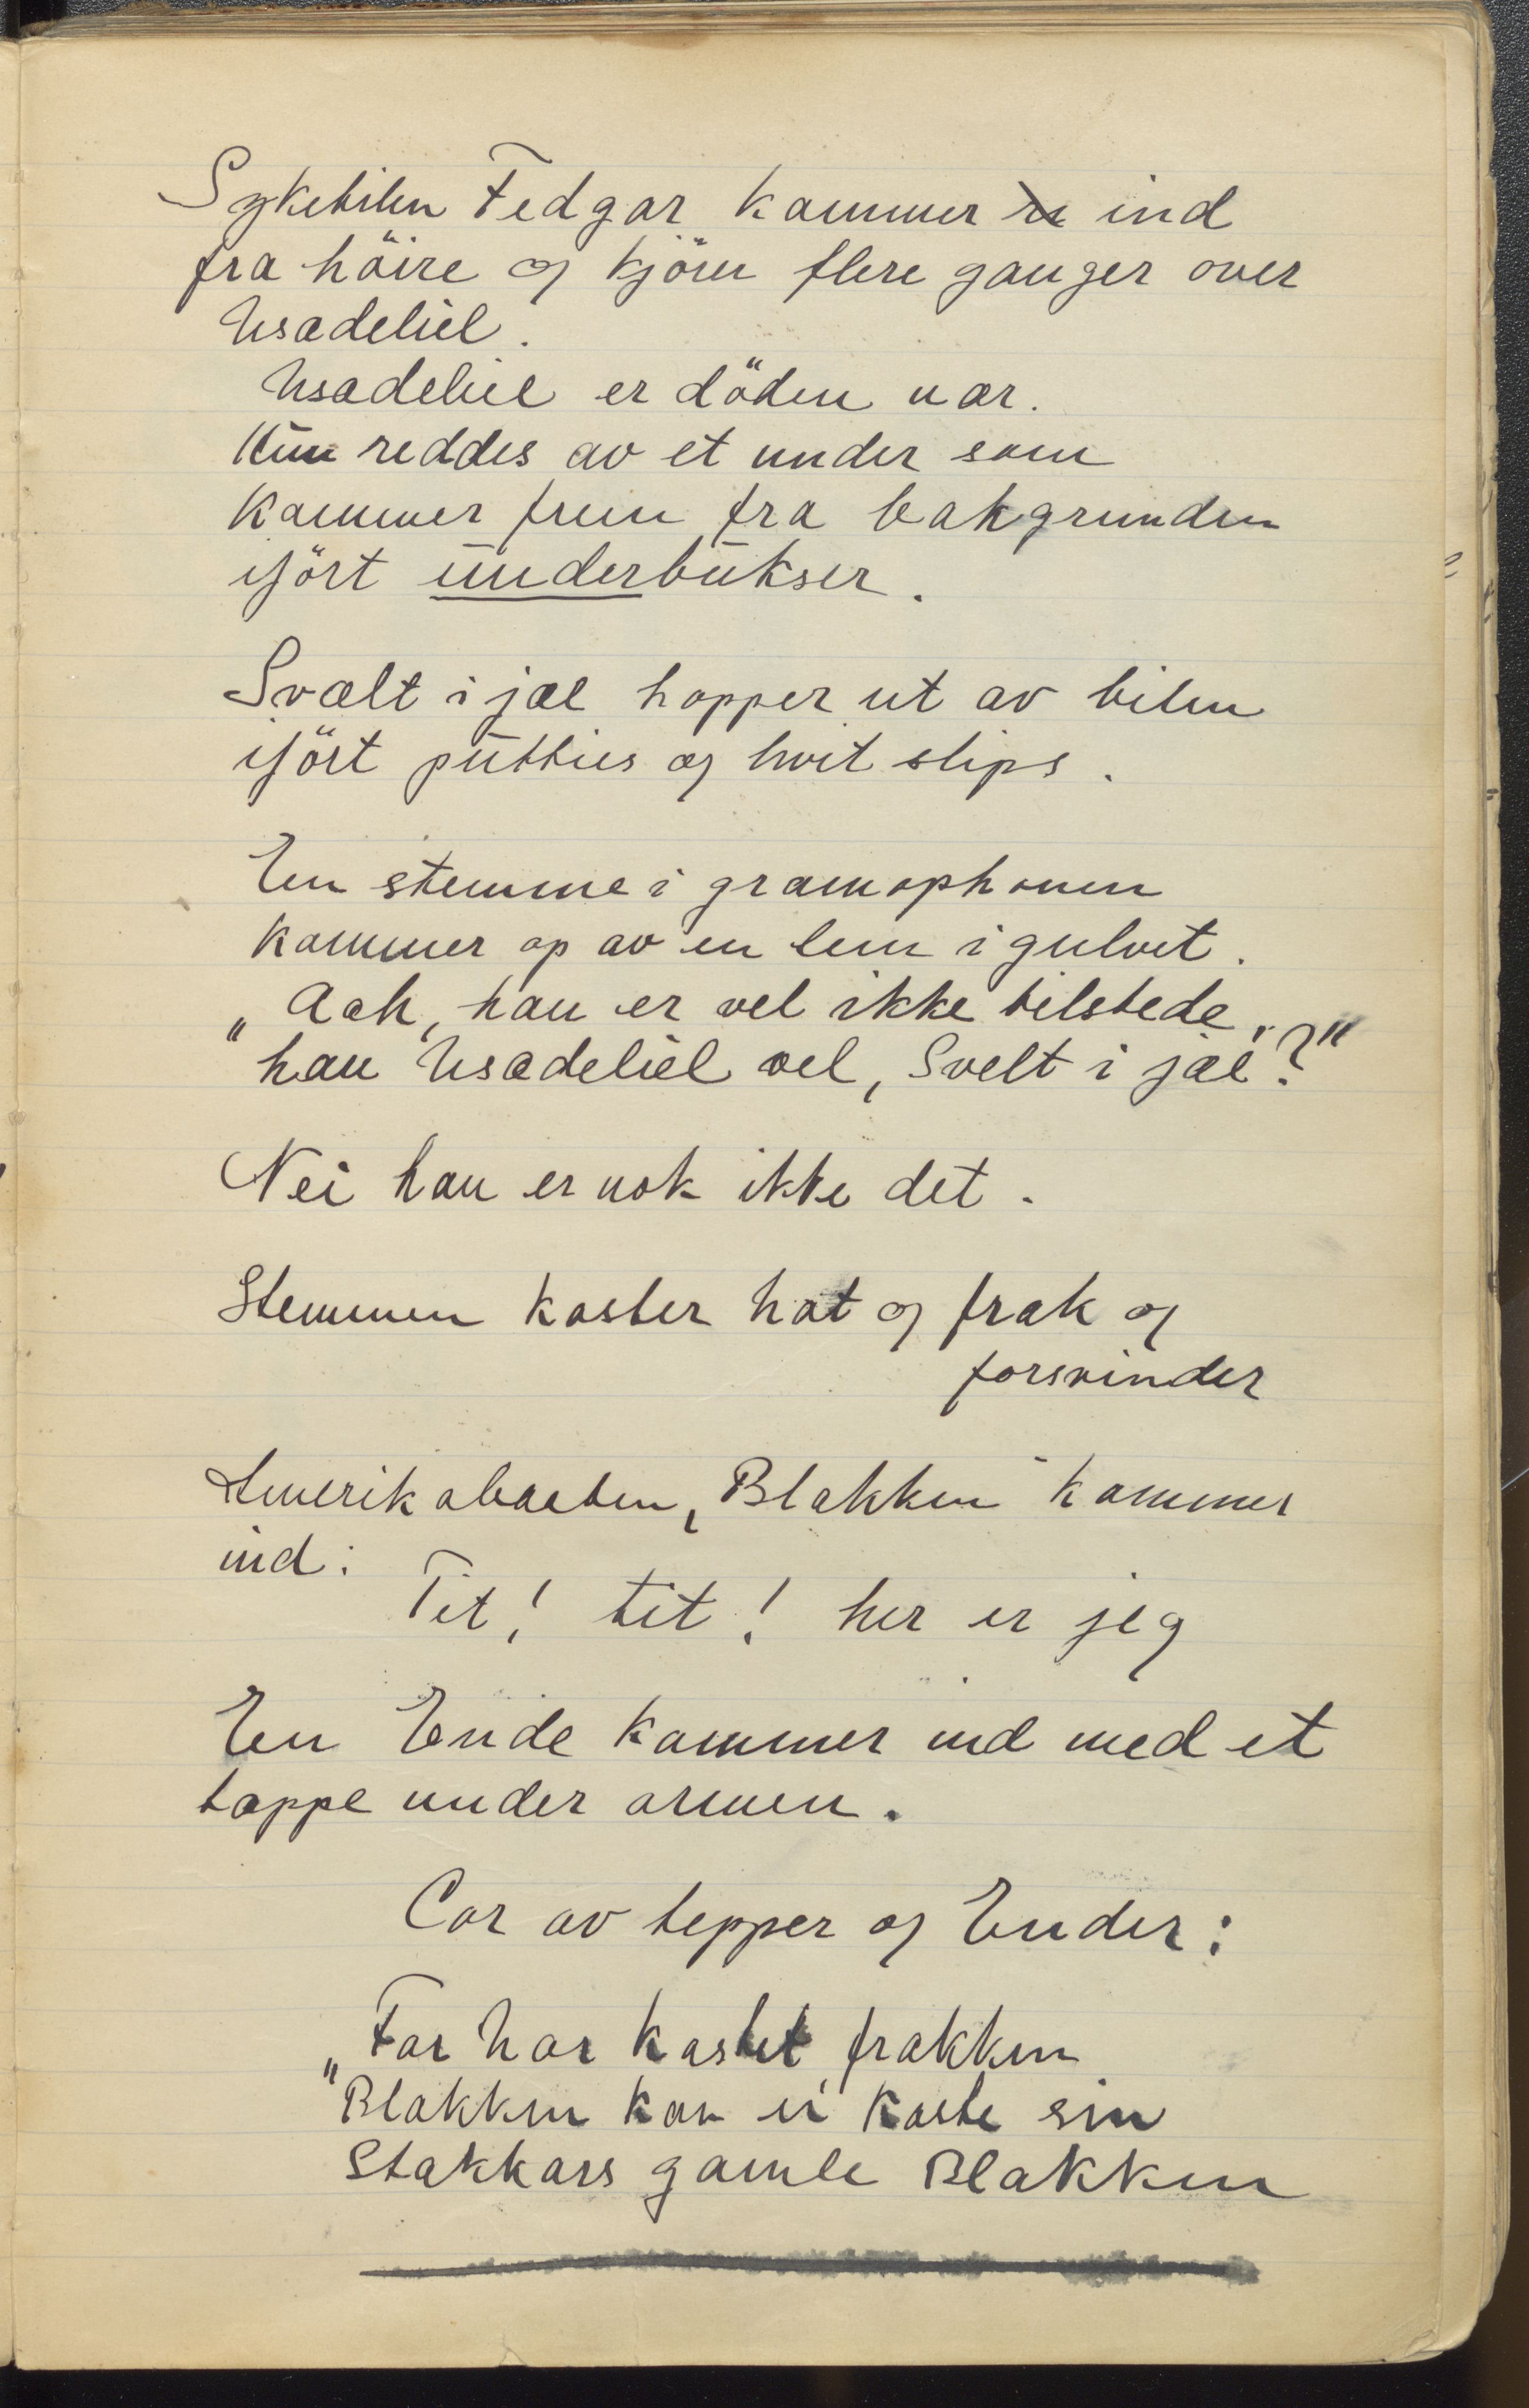 Sykebilen Fedgar kommer ind
fra höire og kjörer flere ganger over
Usædeliel.
Usædeliel er döden nær.
Hun reddes av et under som
kommer frem fra bakgrunden
iført underbukser.
Svælt i jæl hopper ut av bilen
iført putties og hvit slips.
En stemme i gramophonen
kommer op av en lem i gulvet.
„Ack, han er vel ikke tilstede,
han Usædeliel vel, Svelt i jæl?"
Nei han er nok ikke det.
Stemmen kaster hat og frak og
forsvinder
Amerikabaaten „Blakken" kommer
ind:
Tit! tit! her er jeg
En Ende kommer ind med et
tæppe under armen.
Cor av tepper og Ender:
„Far har kastet frakken
Blakken kan ei kaste sin
Stakkars gamle Blakken